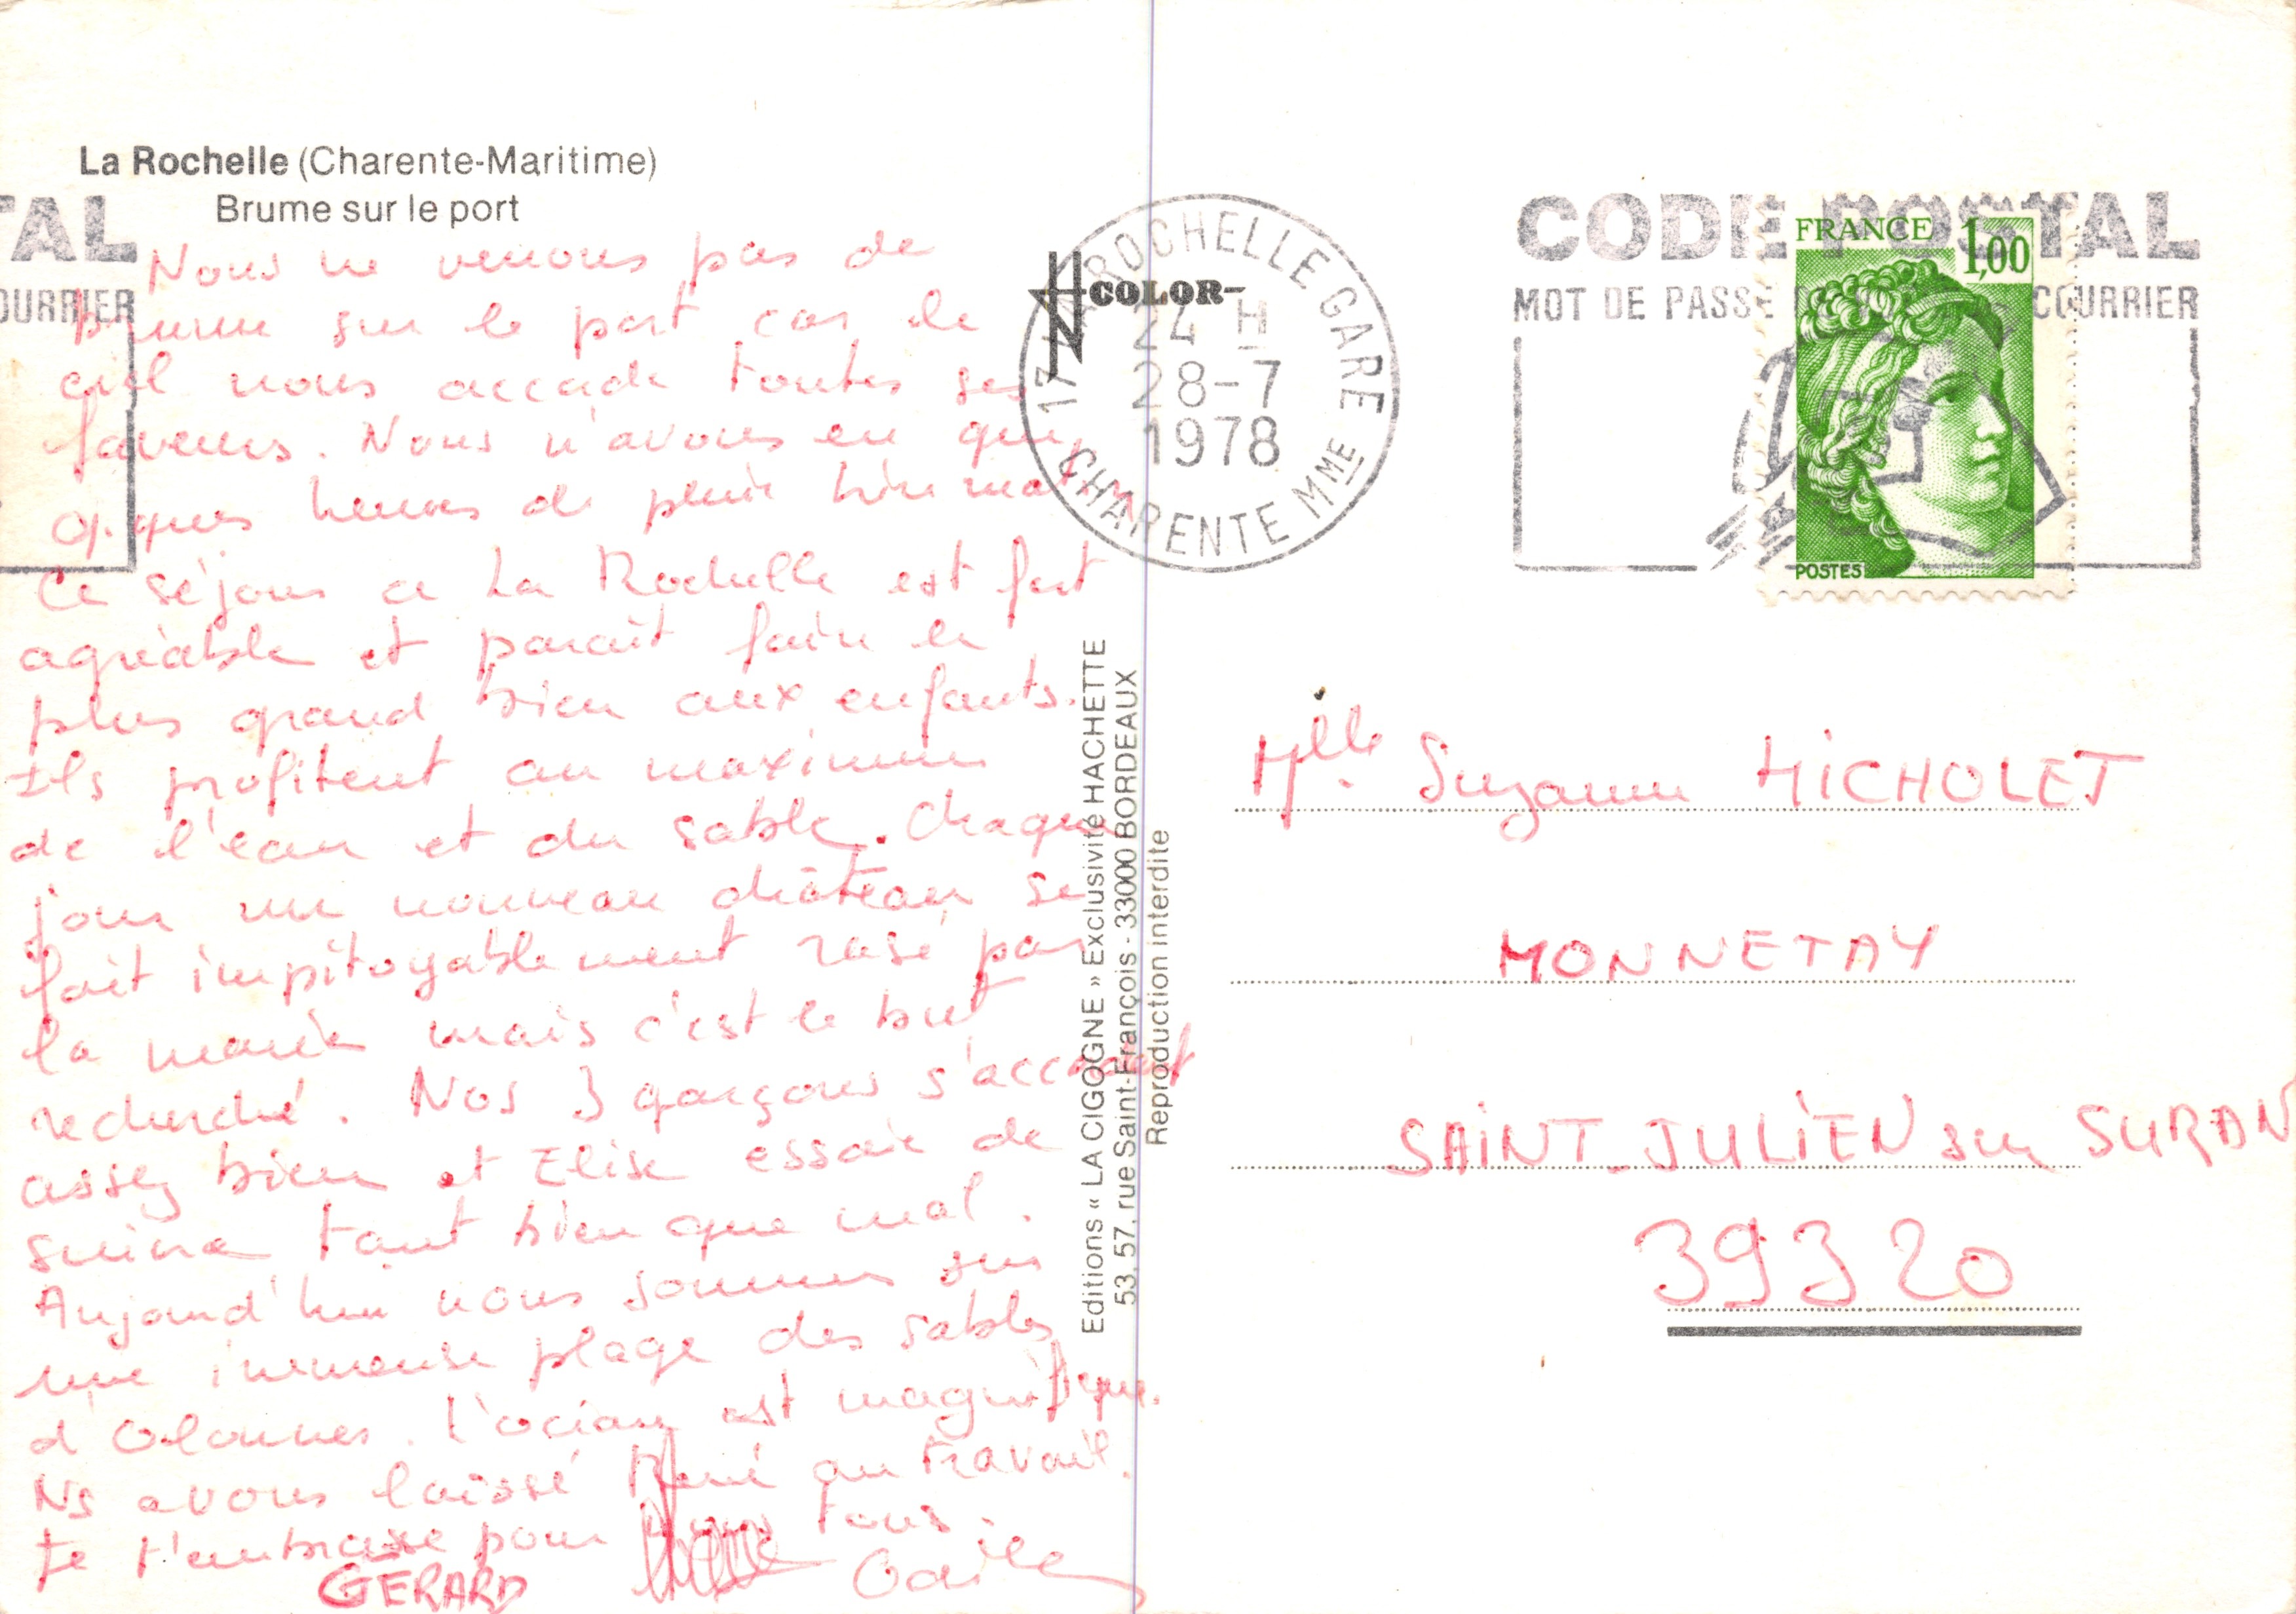 La Rochelle (Charente-Maritime)
Brume sur le port
TAL
OURRIER
Nous ne venons pas de
brume sur le port car le
ciel nous accorde toutes ses
faveurs. Nous n'avons eu que
q. ques heures de pluie hier matin
Ce séjour à La Rochelle est fort
agréable et parait faire le
plus grand bien aux enfants.
Ils profitent au maximum
de l'eau et du sable. Chaque
jour un nouveau château se
fait impitoyablement rasé par
la marée mais c'est le but
recherché. Nos 3 garçons s'accordent
assez bien et Elise essaie de
suivre tant bien que mal.
Aujourd'hui nous sommes sur
une immense plage des sables
d'Olonnes. l'océan est magnifique.
Ns avons laissé René au travail.
Je t'embrasse pour nous tous.
GÉRARD
Odile
COLOR
17 LA ROCHELLE GARE
24 H
28-7
1978
CHARENTE MME
CODE POSTAL
MOT DE PASSE COURRIER
FRANCE 1,00
POSTES
Editions « LA CIGOGNE » Exclusivité HACHETTE
53, 57, rue Saint-François - 33000 BORDEAUX
Reproduction interdite
Mlle Suzanne MICHOLET
MONNETAY
SAINT-JULIEN sur SURAN
39320